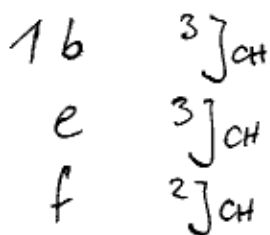 1 b 3] CH
e 3] CH
f 2] CH